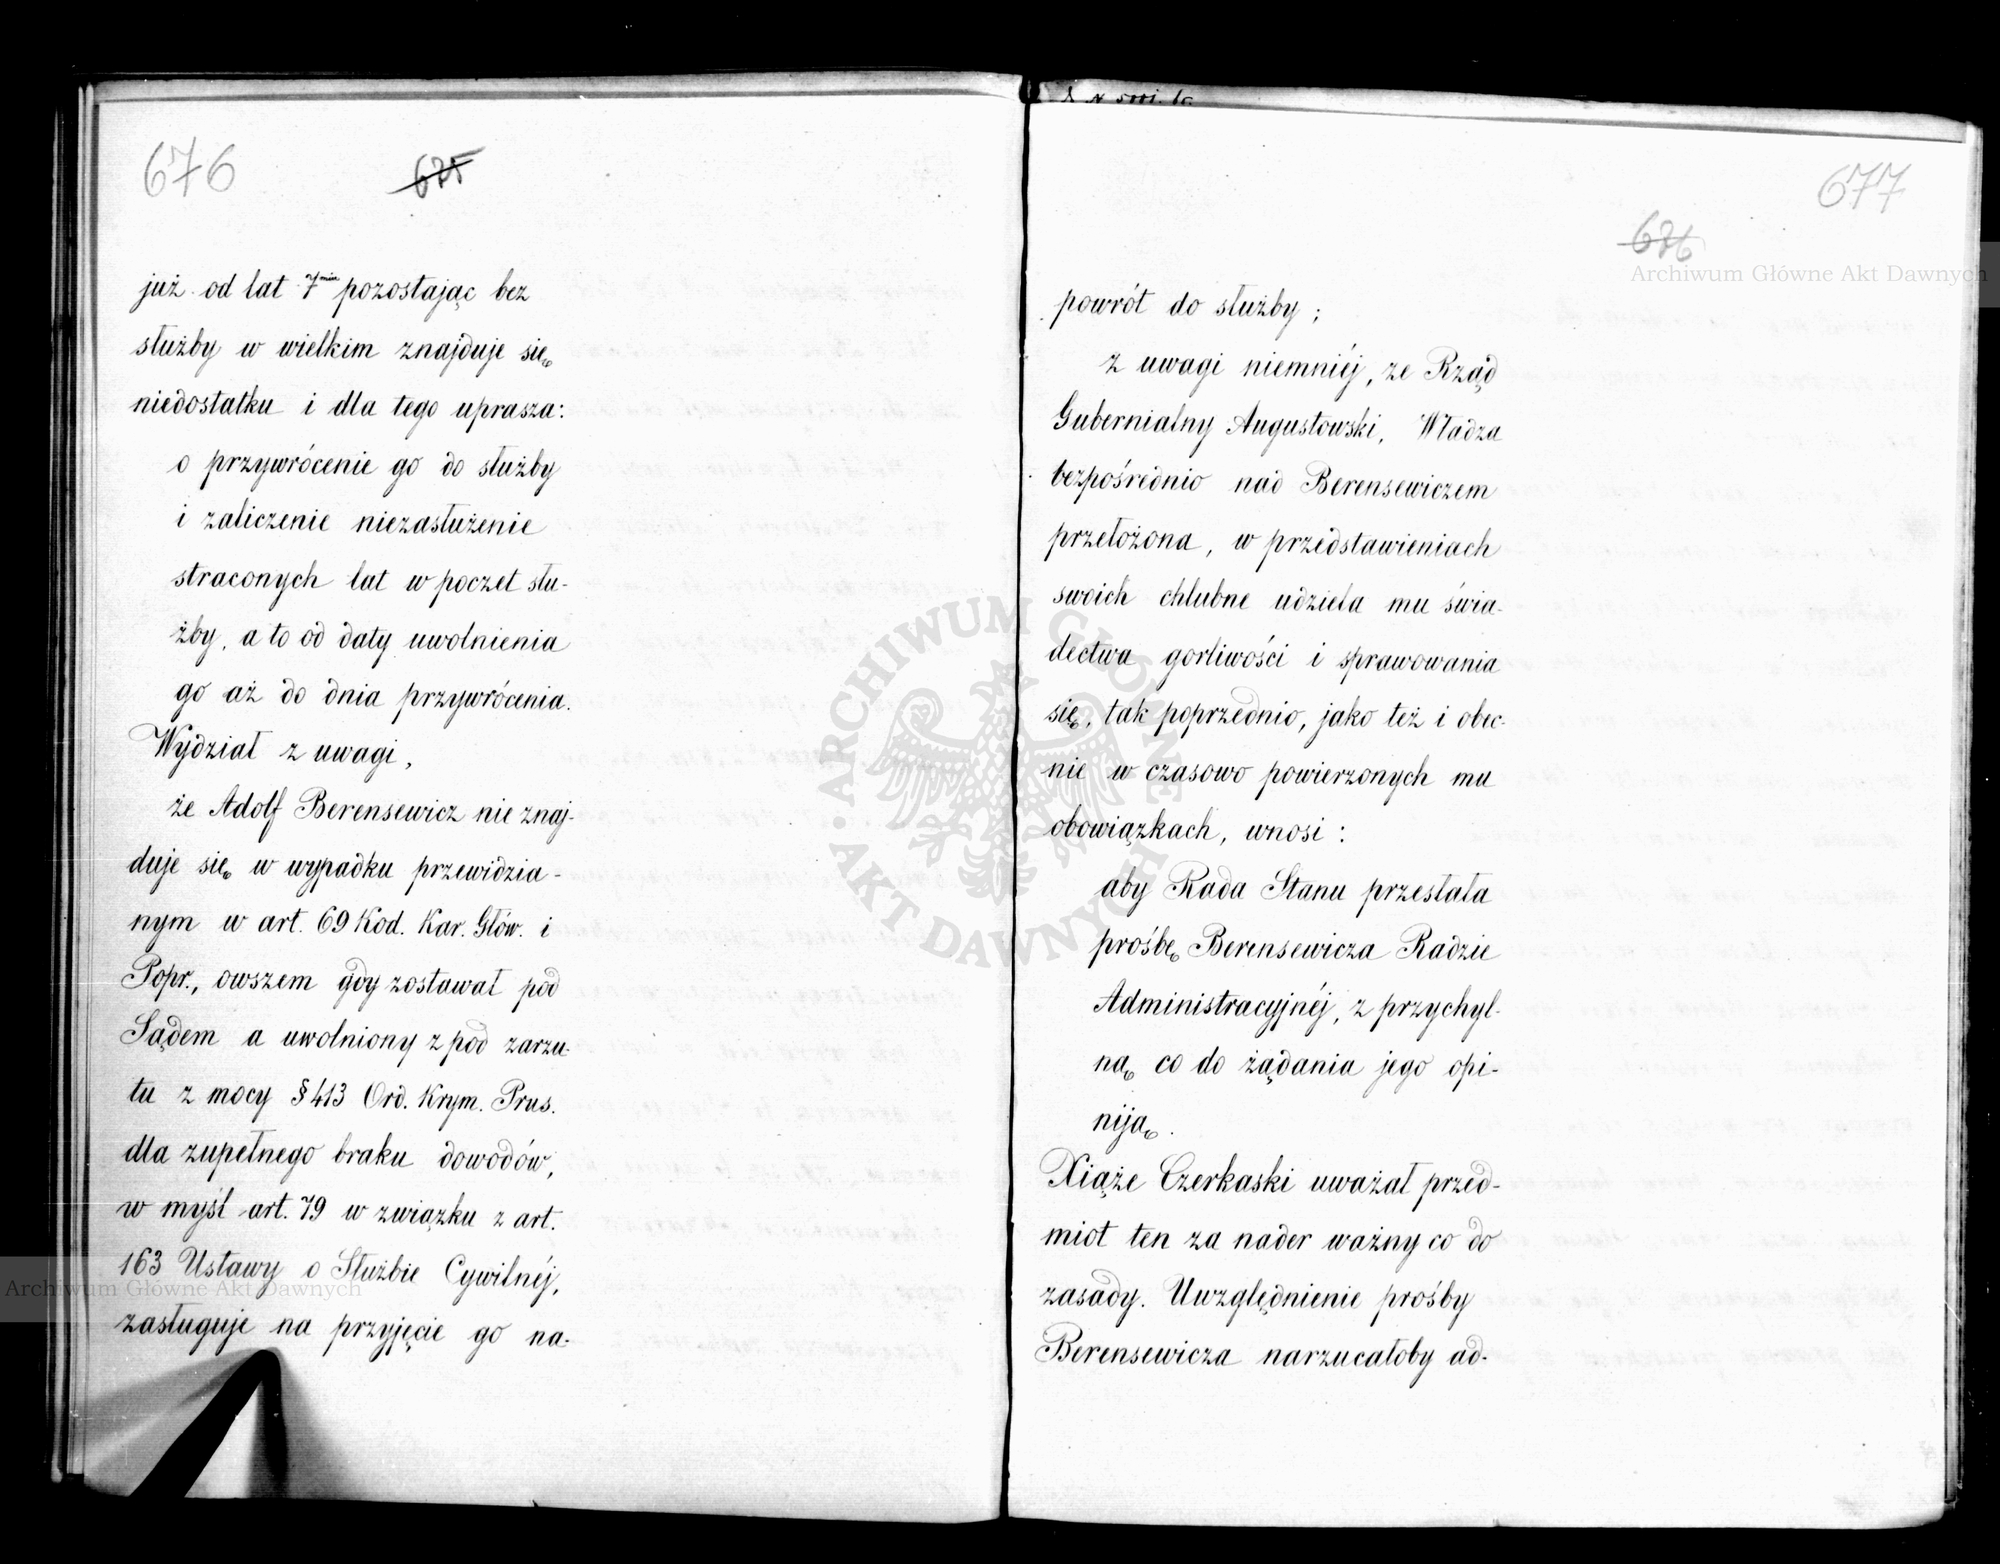 676
675
już od lat 7miu pozostając bez
służby w wielkim znajduje się
niedostatku i dla tego uprasza:
o przywrócenie go do służby
i zaliczenie niezasłużenie
straconych lat w poczet słu-
żby, a to od daty uwolnienia
go aż do dnia przywrócenia.
Wydział z uwagi,
że Adolf Berensewicz nie znaj-
duje się w wypadku przewidzia-
nym w art. 69 Kod. Kar. Głów. i
Popr., owszem gdy zostawał pod
Sądem a uwolniony z pod zarzu-
tu z mocy § 413 Ord. Krym. Prus.
dla zupełnego braku dowodów,
w myśl art. 79 w związku z art.
163 Ustawy o Służbie Cywilnéj,
zasługuje na przyjęcie go na-
677
676
powrót do służby;
z uwagi niemniéj, ze Rząd
Gubernialny Augustowski, Władza
bezpośrednio nad Berensewiczem
przełożona, w przedstawieniach
swoich chlubne udziela mu świa-
dectwa gorliwości i sprawowania
się, tak poprzednio, jako też i obec-
nie w czasowo powierzonych mu
obowiązkach, wnosi:
aby Rada Stanu przesłała
prośbę Berensewicza Radzie
Administracyjnéj, z przychyl-
ną co do żądania jego opi-
niją.
Xiąże Czerkaski uważał przed-
miot ten za nader ważny co do
zasady. Uwzględnienie prośby
Berensewicza narzucałoby ad-
Archiwum Główne Akt Dawnych
Archiwum Główne Akt Dawnych
ARCHIWUM GŁÓWNE
AKT DAWNYCH